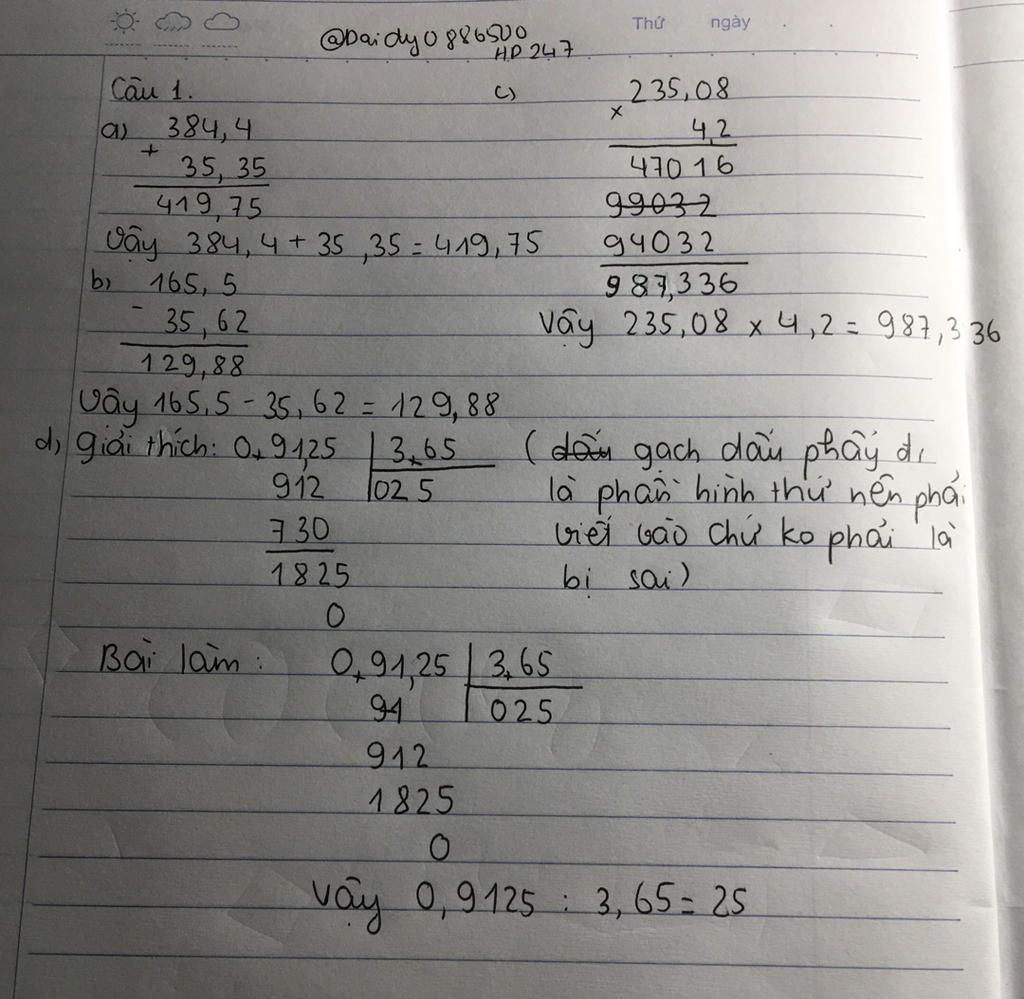 Thứ ngày . .
@Daidy0886500
HD247
Câu 1.
a) 384,4
+
35,35
419,75
Vậy 384,4 + 35,35 = 419,75
b) 165,5
-
35,62
129,88
Vậy 165,5 - 35,62 = 129,88
c) 235,08
×
4,2
47016
99032
94032
987,336
Vậy 235,08 × 4,2 = 987,336
d) giải thích: 0,91,25 3,65
912 025
730
1825
0
(dấu gạch dấu phẩy đi
là phần hình thứ nên phải
viết vào chứ ko phải là
bị sai)
Bài làm: 0,91,25 3,65
91 025
912
1825
0
Vậy 0,9125 : 3,65 = 25